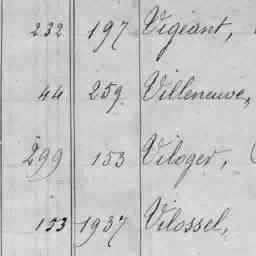 232 197 Vigeant,
44 259. Villeneuve,
299 153 Viloger,
153 1937 Vilossel,